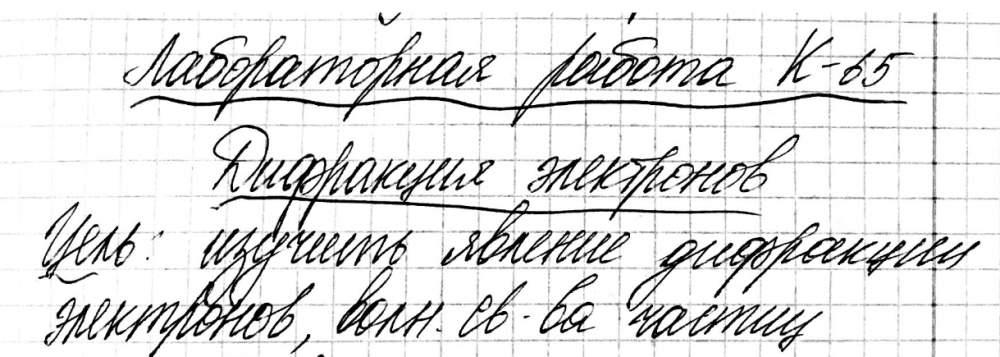 Лабораторная работа К-65
Дифракция электронов
Цель: изучить явление дифракции
электронов, волн. св-ва частиц